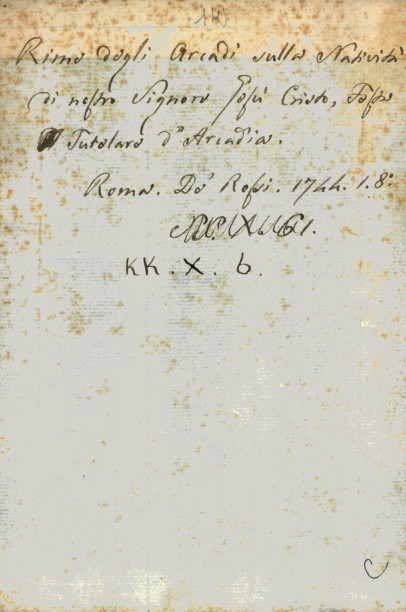 Rime degli Arcadi sulla Natività
di nostro Signore Gesù Cristo, Festa
Tutelare d'Arcadia.
Roma. De' Rossi. 1744. 1. 8:
KK. X. b.